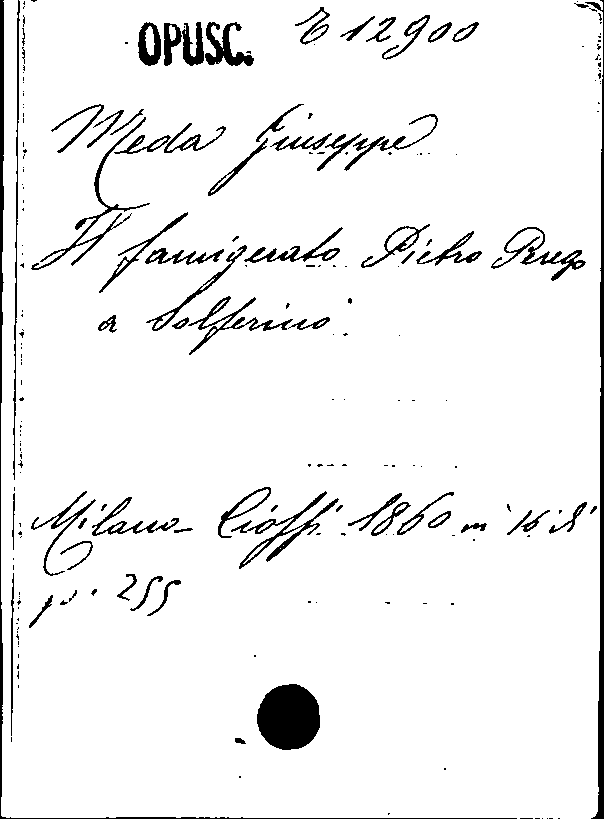 OPUSC. E 12900
Meda Giuseppe
Il famigerato Pietro Perego
a Solferino
Milano - Cioffi 1860 in 16 di
p. 255